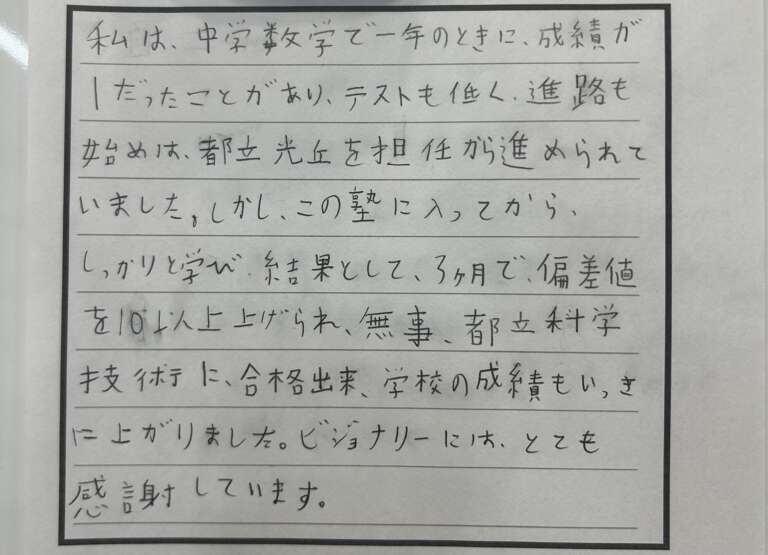 私は、中学数学で一年のときに、成績が
1だったことがあり、テストも低く、進路も
始めは、都立光丘を担任から進められて
いました。しかし、この塾に入ってから、
しっかりと学び、結果として、3ヶ月で、偏差値
を10以上上げられ、無事、都立科学
技術に、合格出来、学校の成績もいっき
に上がりました。ビジョナリーには、とても
感謝しています。